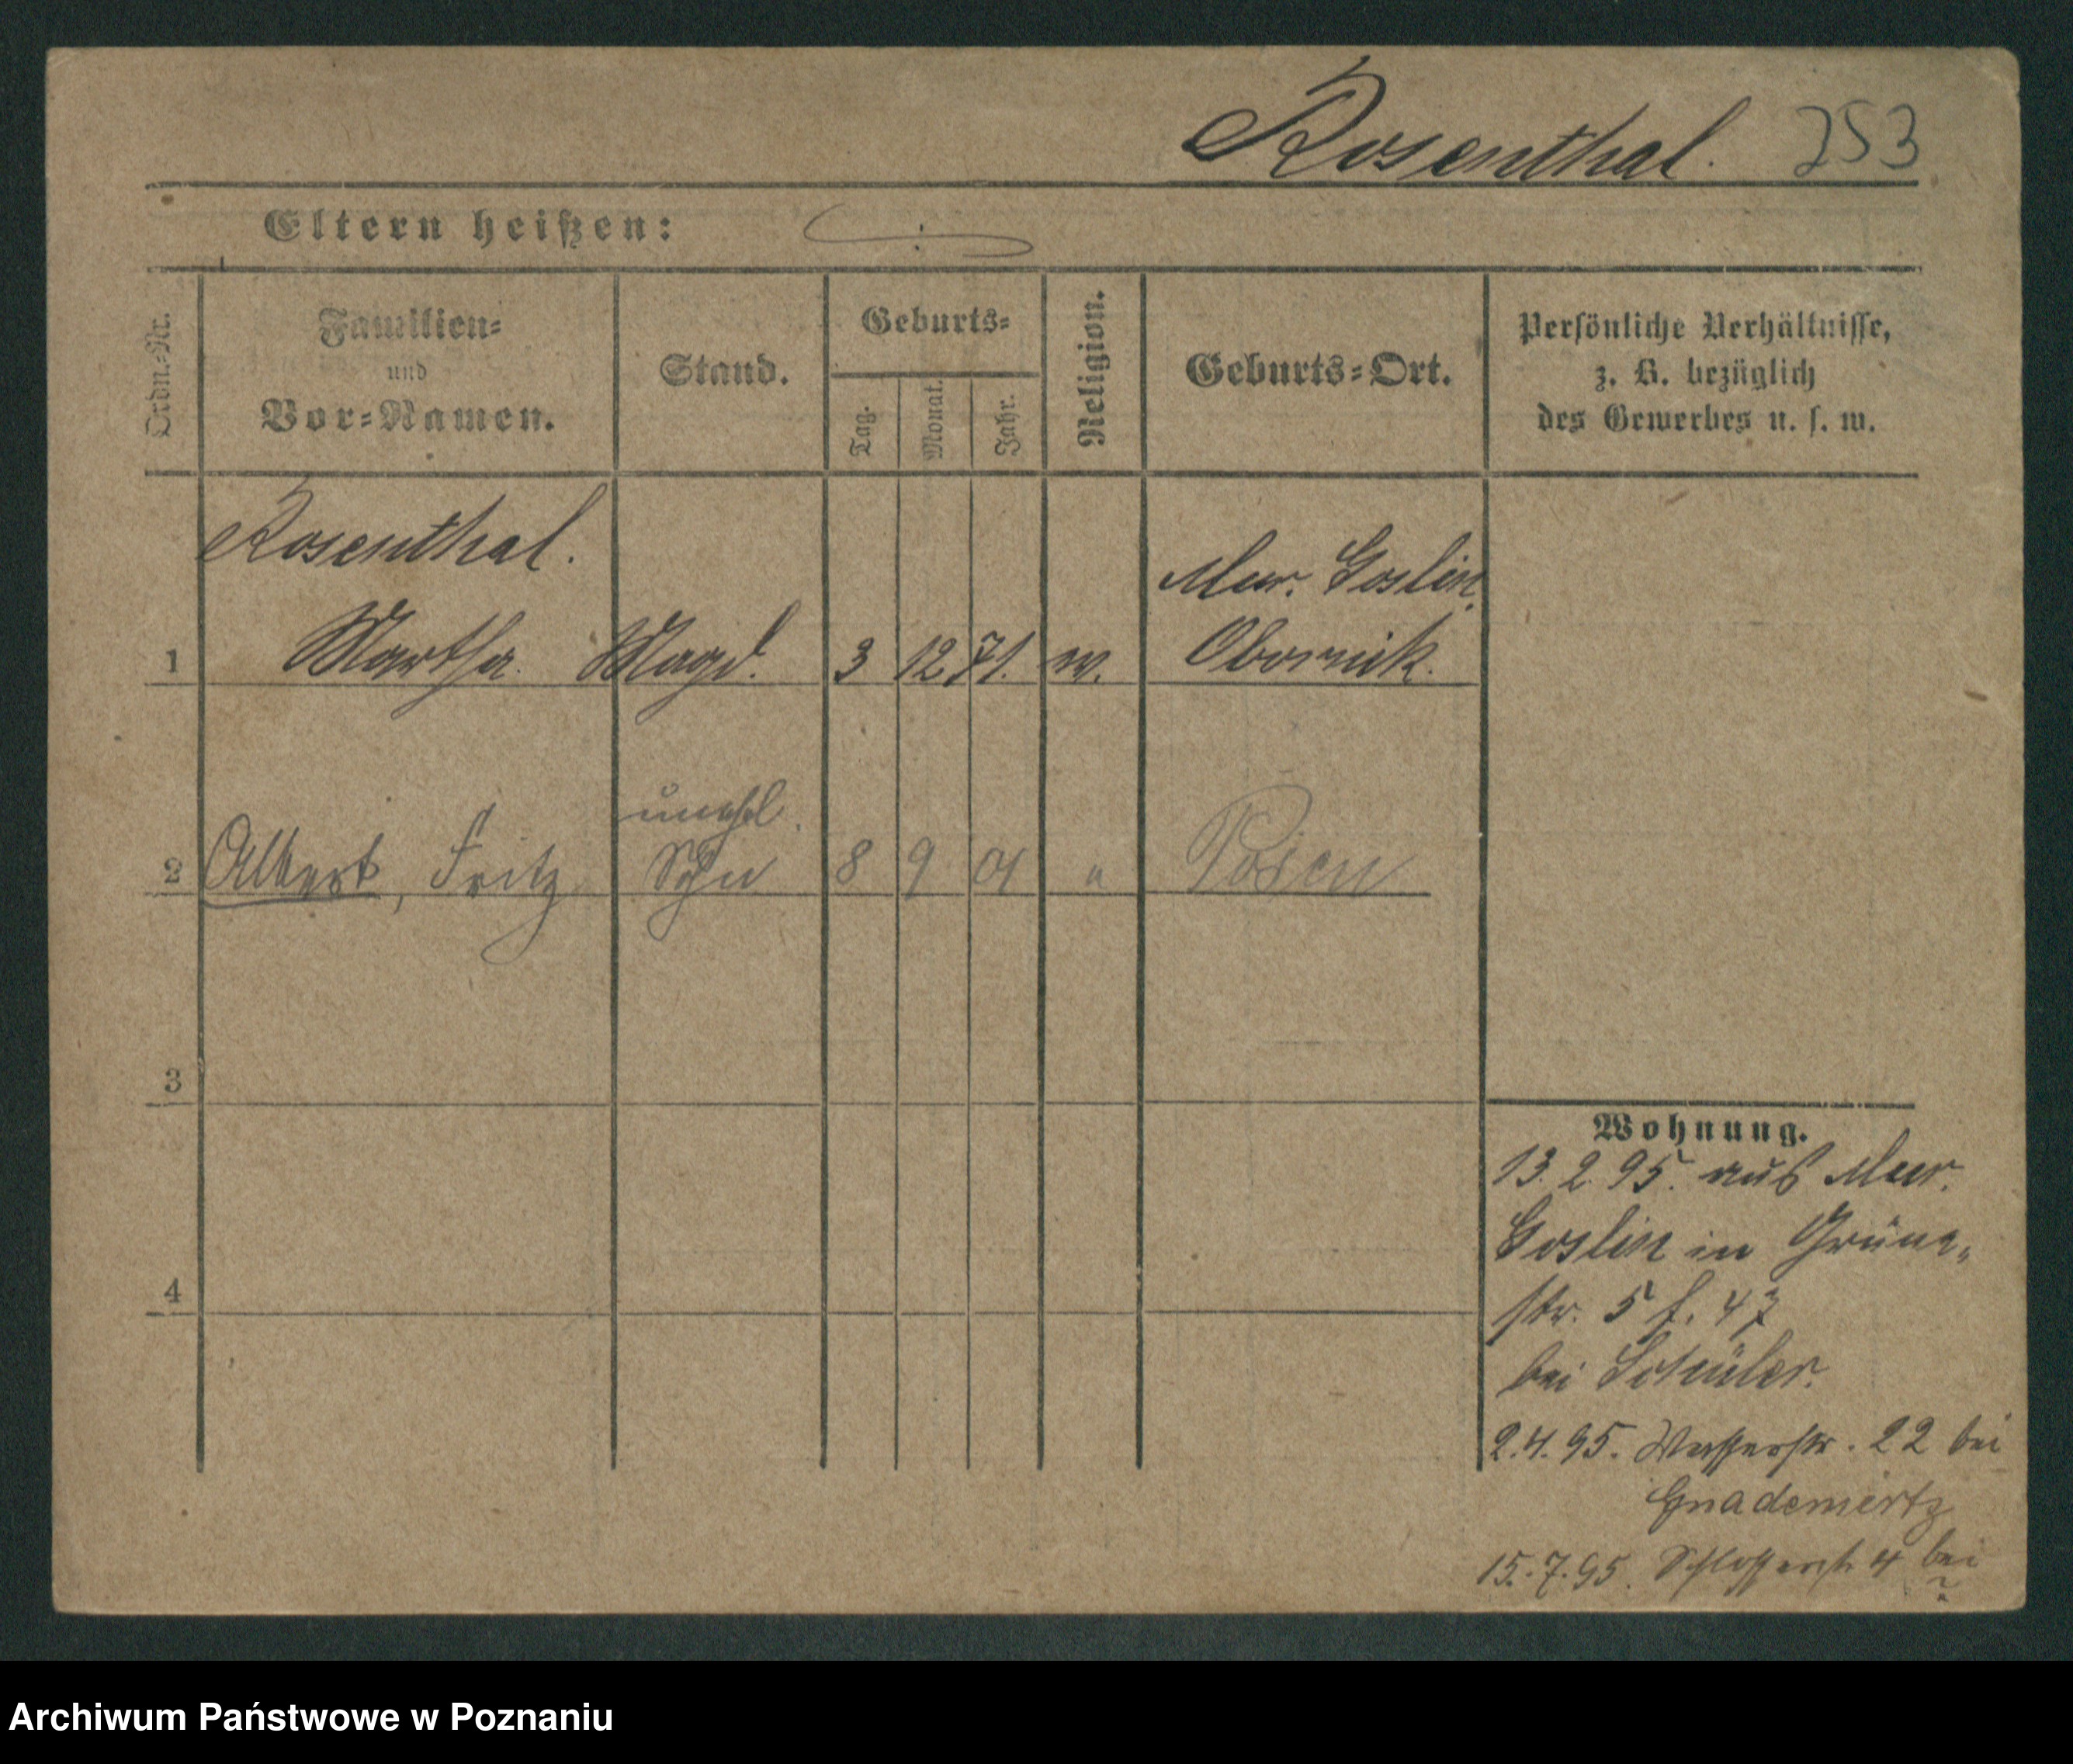 Rosenthal. 253
Eltern heißen:
Ordn.-Nr.
Familien-
und
Vor-Namen.
Stand.
Geburts-
Tag.
Monat.
Jahr.
Religion.
Geburts-Ort.
Persönliche Verhältnisse,
z. B. bezüglich
des Gewerbes u. s. w.
Rosenthal.
Mur. Goslin.
1 Martha. Magd. 3 12 71. Obornik.
unehl.
2 Albert, Fritz Sohn 8 9 " Posen
3
Wohnung.
13. 2. 95. aus Mur.
Goslin in Grüne-
4
str. 5 f. 47
bei Schüler.
2.4.95. Wasserstr. 22 bei
Gnademertz
15.7.95. Schlosserstr. 4 bei
?
Archiwum Państwowe w Poznaniu